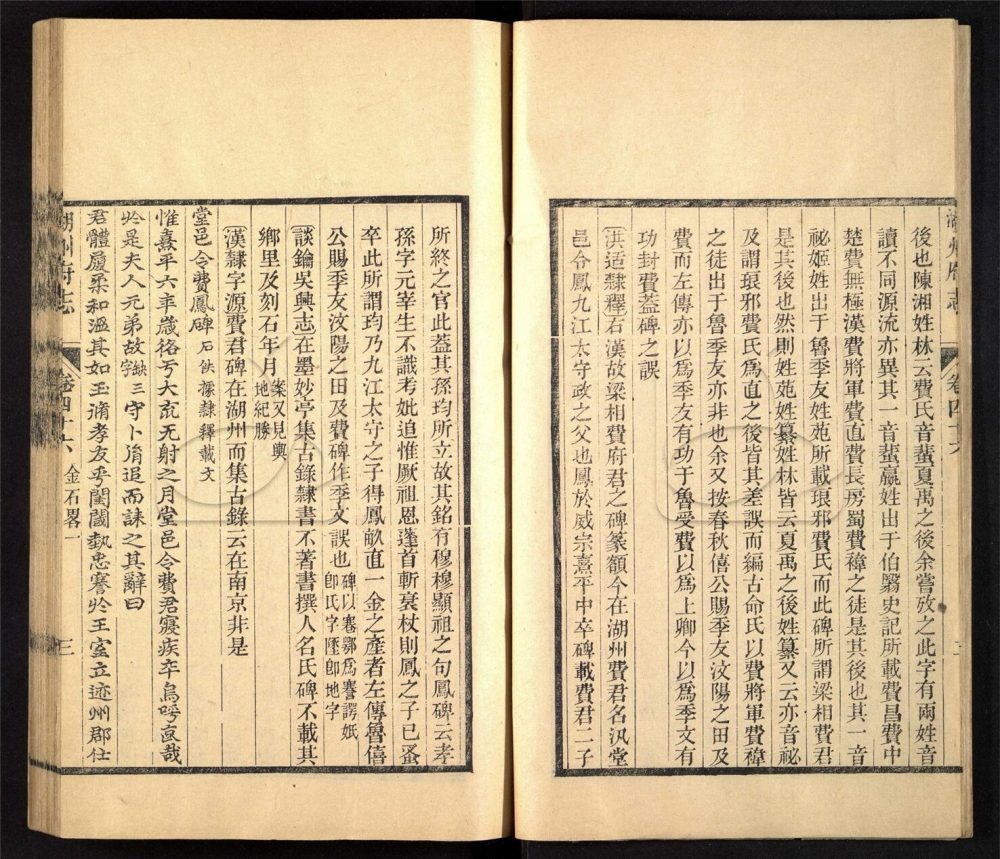 湖州府志
卷四十六
後也陳湘姓林云費氏音蜚夏禹之後余嘗攷之此字有兩姓音
讀不同源流亦異其一音蜚嬴姓出于伯翳史記所載費昌費中
楚費無極漢費將軍費直費長房蜀費禕之徒是其後也其一音
祕姬姓出于魯季友姓苑所載琅邪費氏而此碑所謂梁相費君
是其後也然則姓苑姓纂姓林皆云夏禹之後姓纂又云亦音祕
及謂琅邪費氏為直之後皆其差誤而編古命氏以費將軍費禕
之徒出于魯季友亦非也余又按春秋僖公賜季友汶陽之田及
費而左傳亦以為季友有功于魯受費以為上卿今以為季文有
功封費蓋碑之誤
洪适隸釋右漢故梁相費府君之碑篆額今在湖州費君名汎堂
邑令鳳九江太守政之父也鳳於威宗熹平中卒碑載費君二子
所終之官此蓋其孫均所立故其銘有穆穆顯祖之句鳳碑云孝
孫字元宰生不識考妣追惟厥祖恩蓬首斬衰杖則鳳之子已蚤
卒此所謂均乃九江太守之子得鳳畝直一金之產者左傳魯僖
公賜季友汶陽之田及費碑作季文誤也碑以騫鄂為謇諤姄
即氏字墬即地字
談鑰吳興志在墨妙亭集古錄隸書不著書撰人名氏碑不載其
鄉里及刻石年月案又見輿
地紀勝
漢隸字源費君碑在湖州而集古錄云在南京非是
堂邑令費鳳碑石佚據隸釋載文
惟熹平六年歲格于大荒无射之月堂邑令費君寢疾卒烏呼哀哉
於是夫人元弟故字缺三守卜胤追而誄之其辭曰
君體履柔和溫其如玉脩孝友乎閨閫執忠謇於王室立迹州郡仕
湖州府志
卷四十六
金石畧一
三